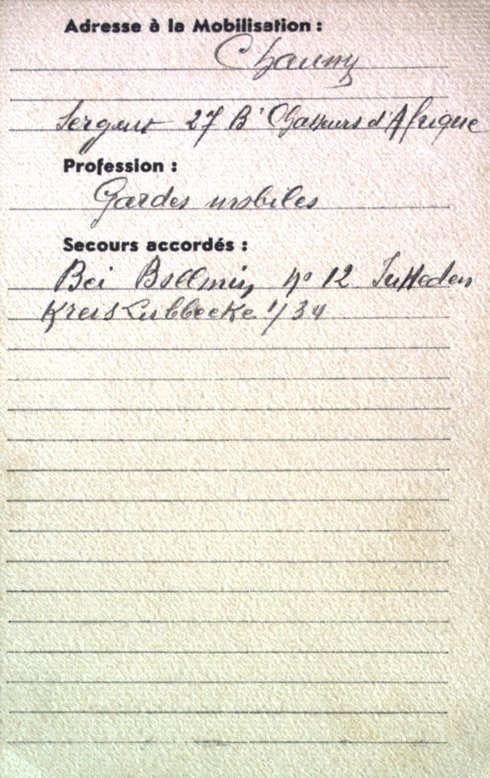 Adresse à la Mobilisation :
Chauny
Sergent 27 Bn Chasseurs d'Afrique
Profession :
Gardes mobiles
Secours accordés :
Bei n° 12
Kreis Lubbecke